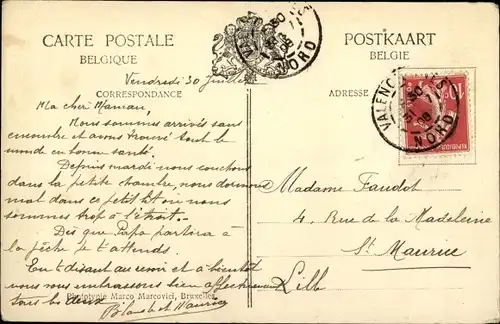 CARTE POSTALE
BELGIQUE
POSTKAART
BELGIE
Vendredi 30 Juillet
CORRESPONDANCE
ADRESSE
Ma cher Maman,
Nous sommes arrivés sans
encombre et avons trouvé tout le
monde en bonne santé.
Depuis mardi nous couchons
dans la petite chambre, nous dormons
mal dans ce petit lit on nous
sommes trop à l'étroit.
Dès que Papa partira à
la pêche je t'attends.
En t'disant au revoir et à bientôt
nous vous embrassons bien affectueusement
tous les deux
Blanche et Maurice
Phototypie Marco Marcovici, Bruxelles
Madame Faudot
4, Rue de la Madeleine
St Maurice
Lille
NORD
VALENCIENNES
30
31
08
NORD
10